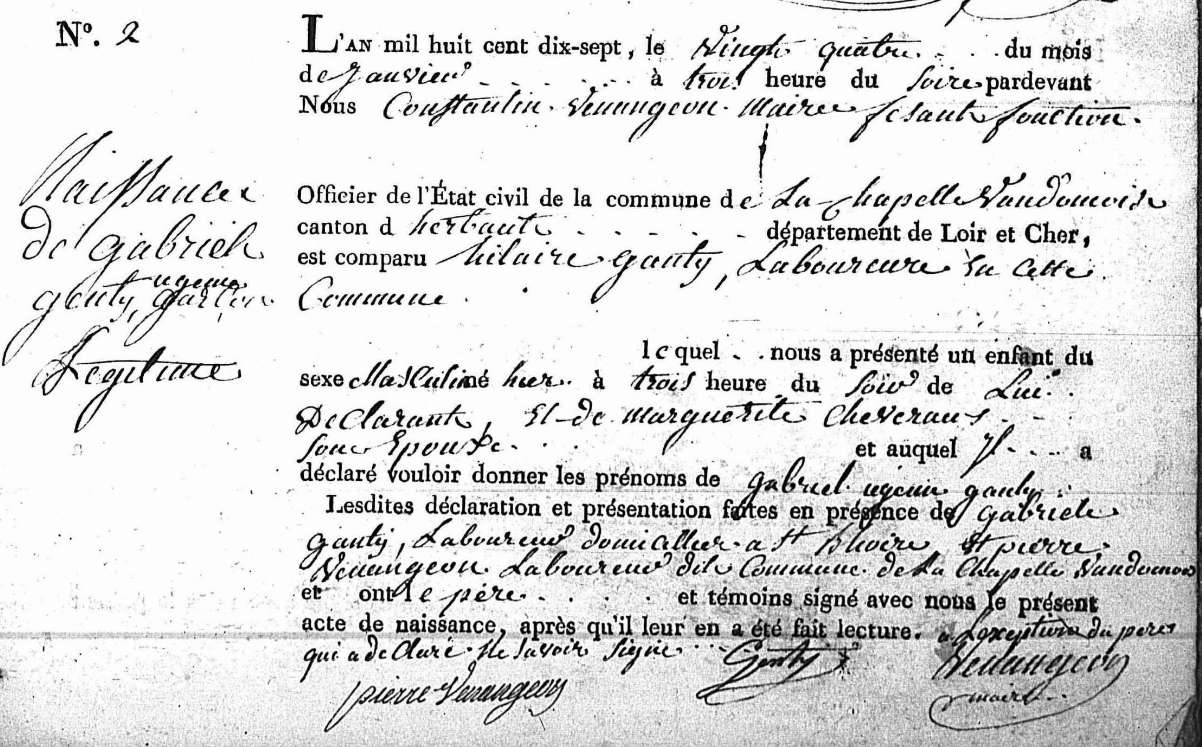 N°. 2
L'AN mil huit cent dix-sept, le Vingt quatre . . du mois
de Janvier . . . . . . à trois heure du soire pardevant
Nous Constantin Venangeon maire fesant fonction.
Naissance
de gabriel
ugenne
genty, garçon
Legitime
Officier de l'État civil de la commune de La Chapelle Vandomois
canton d herbault . . . . . département de Loir et Cher,
est comparu hilaire ganty, Laboureure en cette
Commune .
lequel . . nous a présenté un enfant du
sexe Masculin né hier à trois heure du soir de Lui
Declarant, et de marguerite Cheveraus
sone Epouse . et auquel il . . . a
déclaré vouloir donner les prénoms de gabriel ganty
Lesdites déclaration et présentation faites en présence de gabriele
ganty, Laboureur domicillier a St et pierre
Venangeon Laboureur Commune de La Chapelle Vandomois
et ont le père . . . . et témoins signé avec nous le présent
acte de naissance, après qu'il leur en a été fait lecture. a L'exeption du pere
qui a de Claré ne savoir signe . . . Genty Venangeon
pierre Venangeon maire